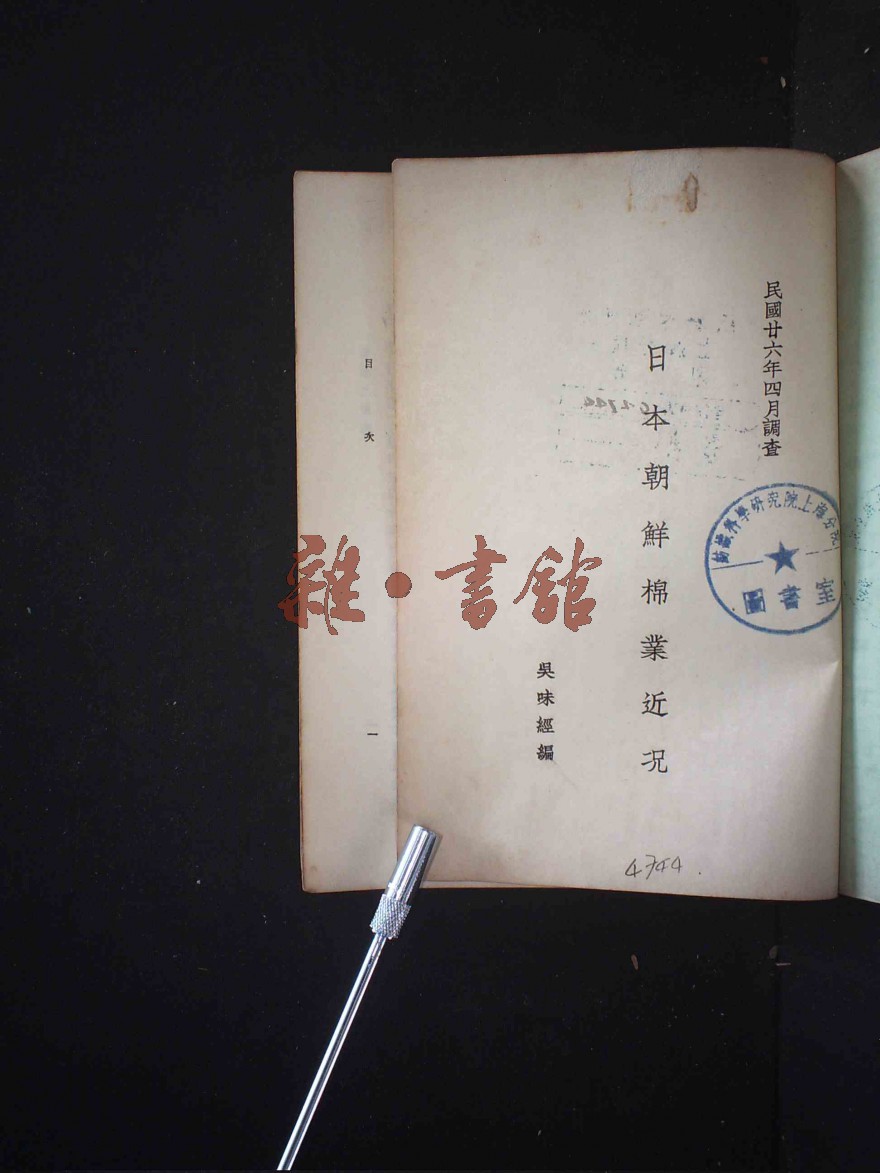 民國廿六年四月調查
日本朝鮮棉業近況
吳味經編
紡織科學研究院上海分院
圖書室
目次
一
雜·書館